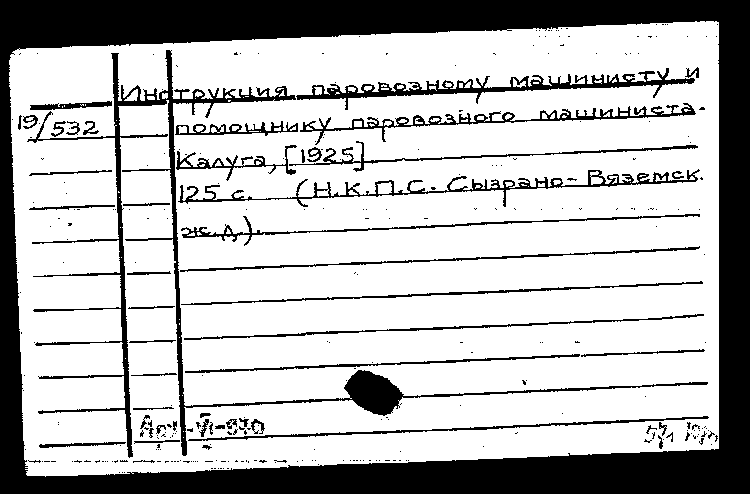 Инструкция паровозному машинисту и
19/532 помощнику паровозного машиниста.
Калуга, [1925]
125 с. (Н.К.П.С. Сызрано-Вяземск.
ж.д.).
Арт-VI-970